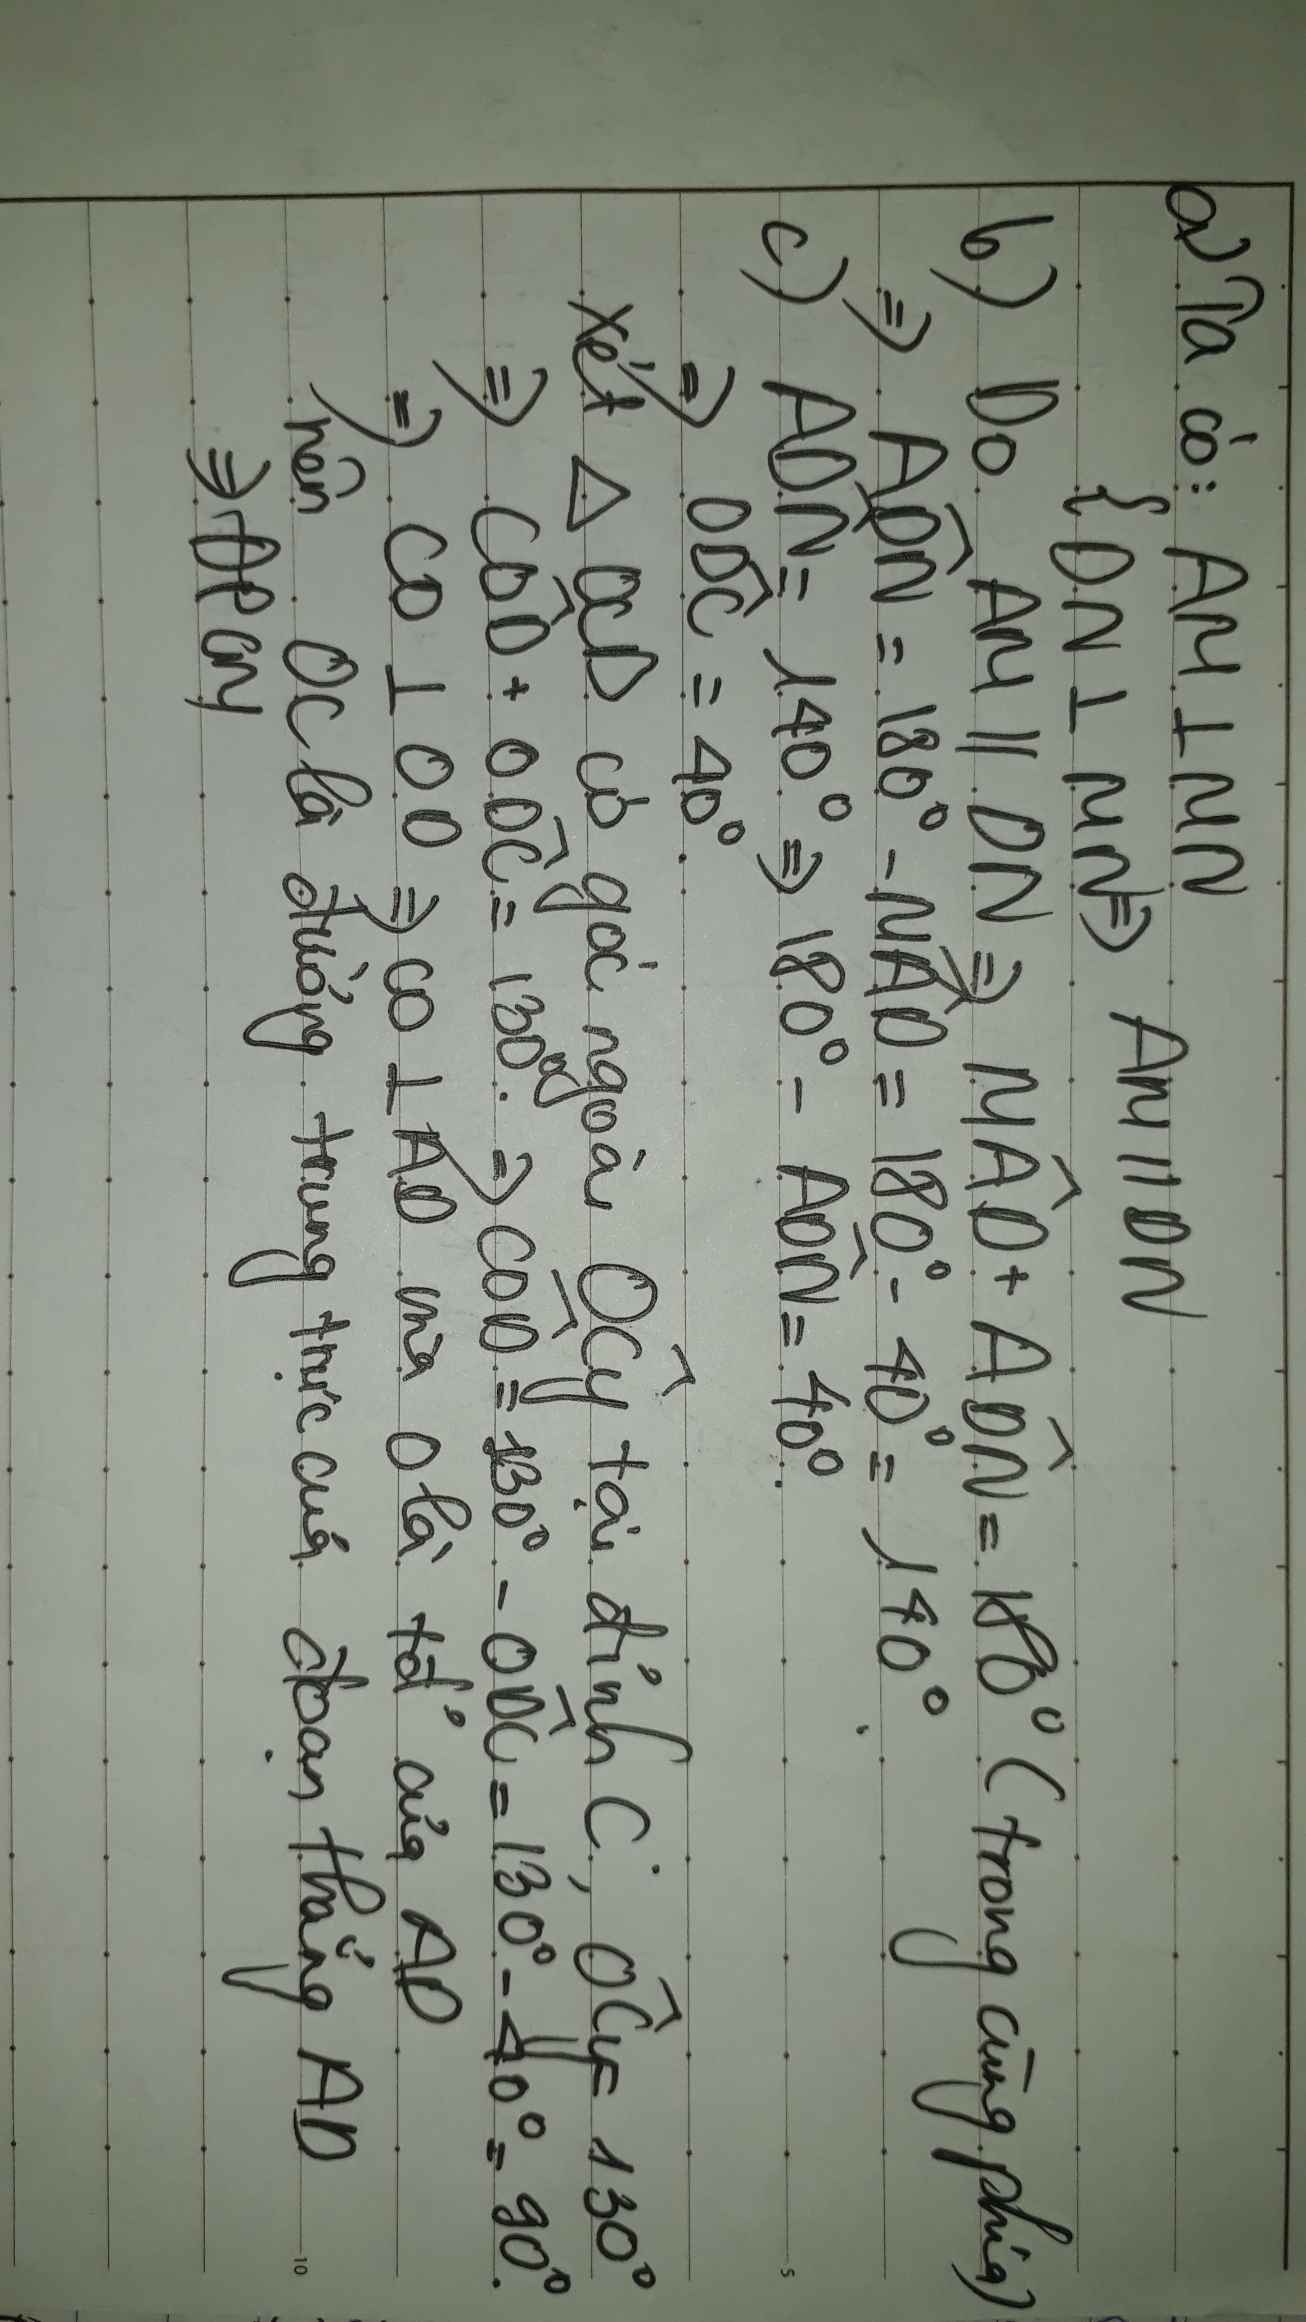 a) Ta có: AM ⊥ MN
{ DN ⊥ MN ⇒ AM || DN
b) Do AM || DN ⇒ MÂD + AD̂N = 180° (trong cùng phía)
⇒ AD̂N = 180° - MÂD = 180° - 40° = 140°
c) AD̂N = 140° ⇒ 180° - AD̂N = 40°.
⇒ OD̂C = 40°.
Xét △ OCD có góc ngoài OĈy tại đỉnh C, OĈy = 130°
⇒ CÔD + OD̂C = 130°. ⇒ CÔD = 130° - OD̂C = 130° - 40° = 90°.
⇒ CO ⊥ OD ⇒ CO ⊥ AD mà O là tđ của AD
nên OC là đường trung trực của đoạn thẳng AD
⇒ ĐPCM
5
10